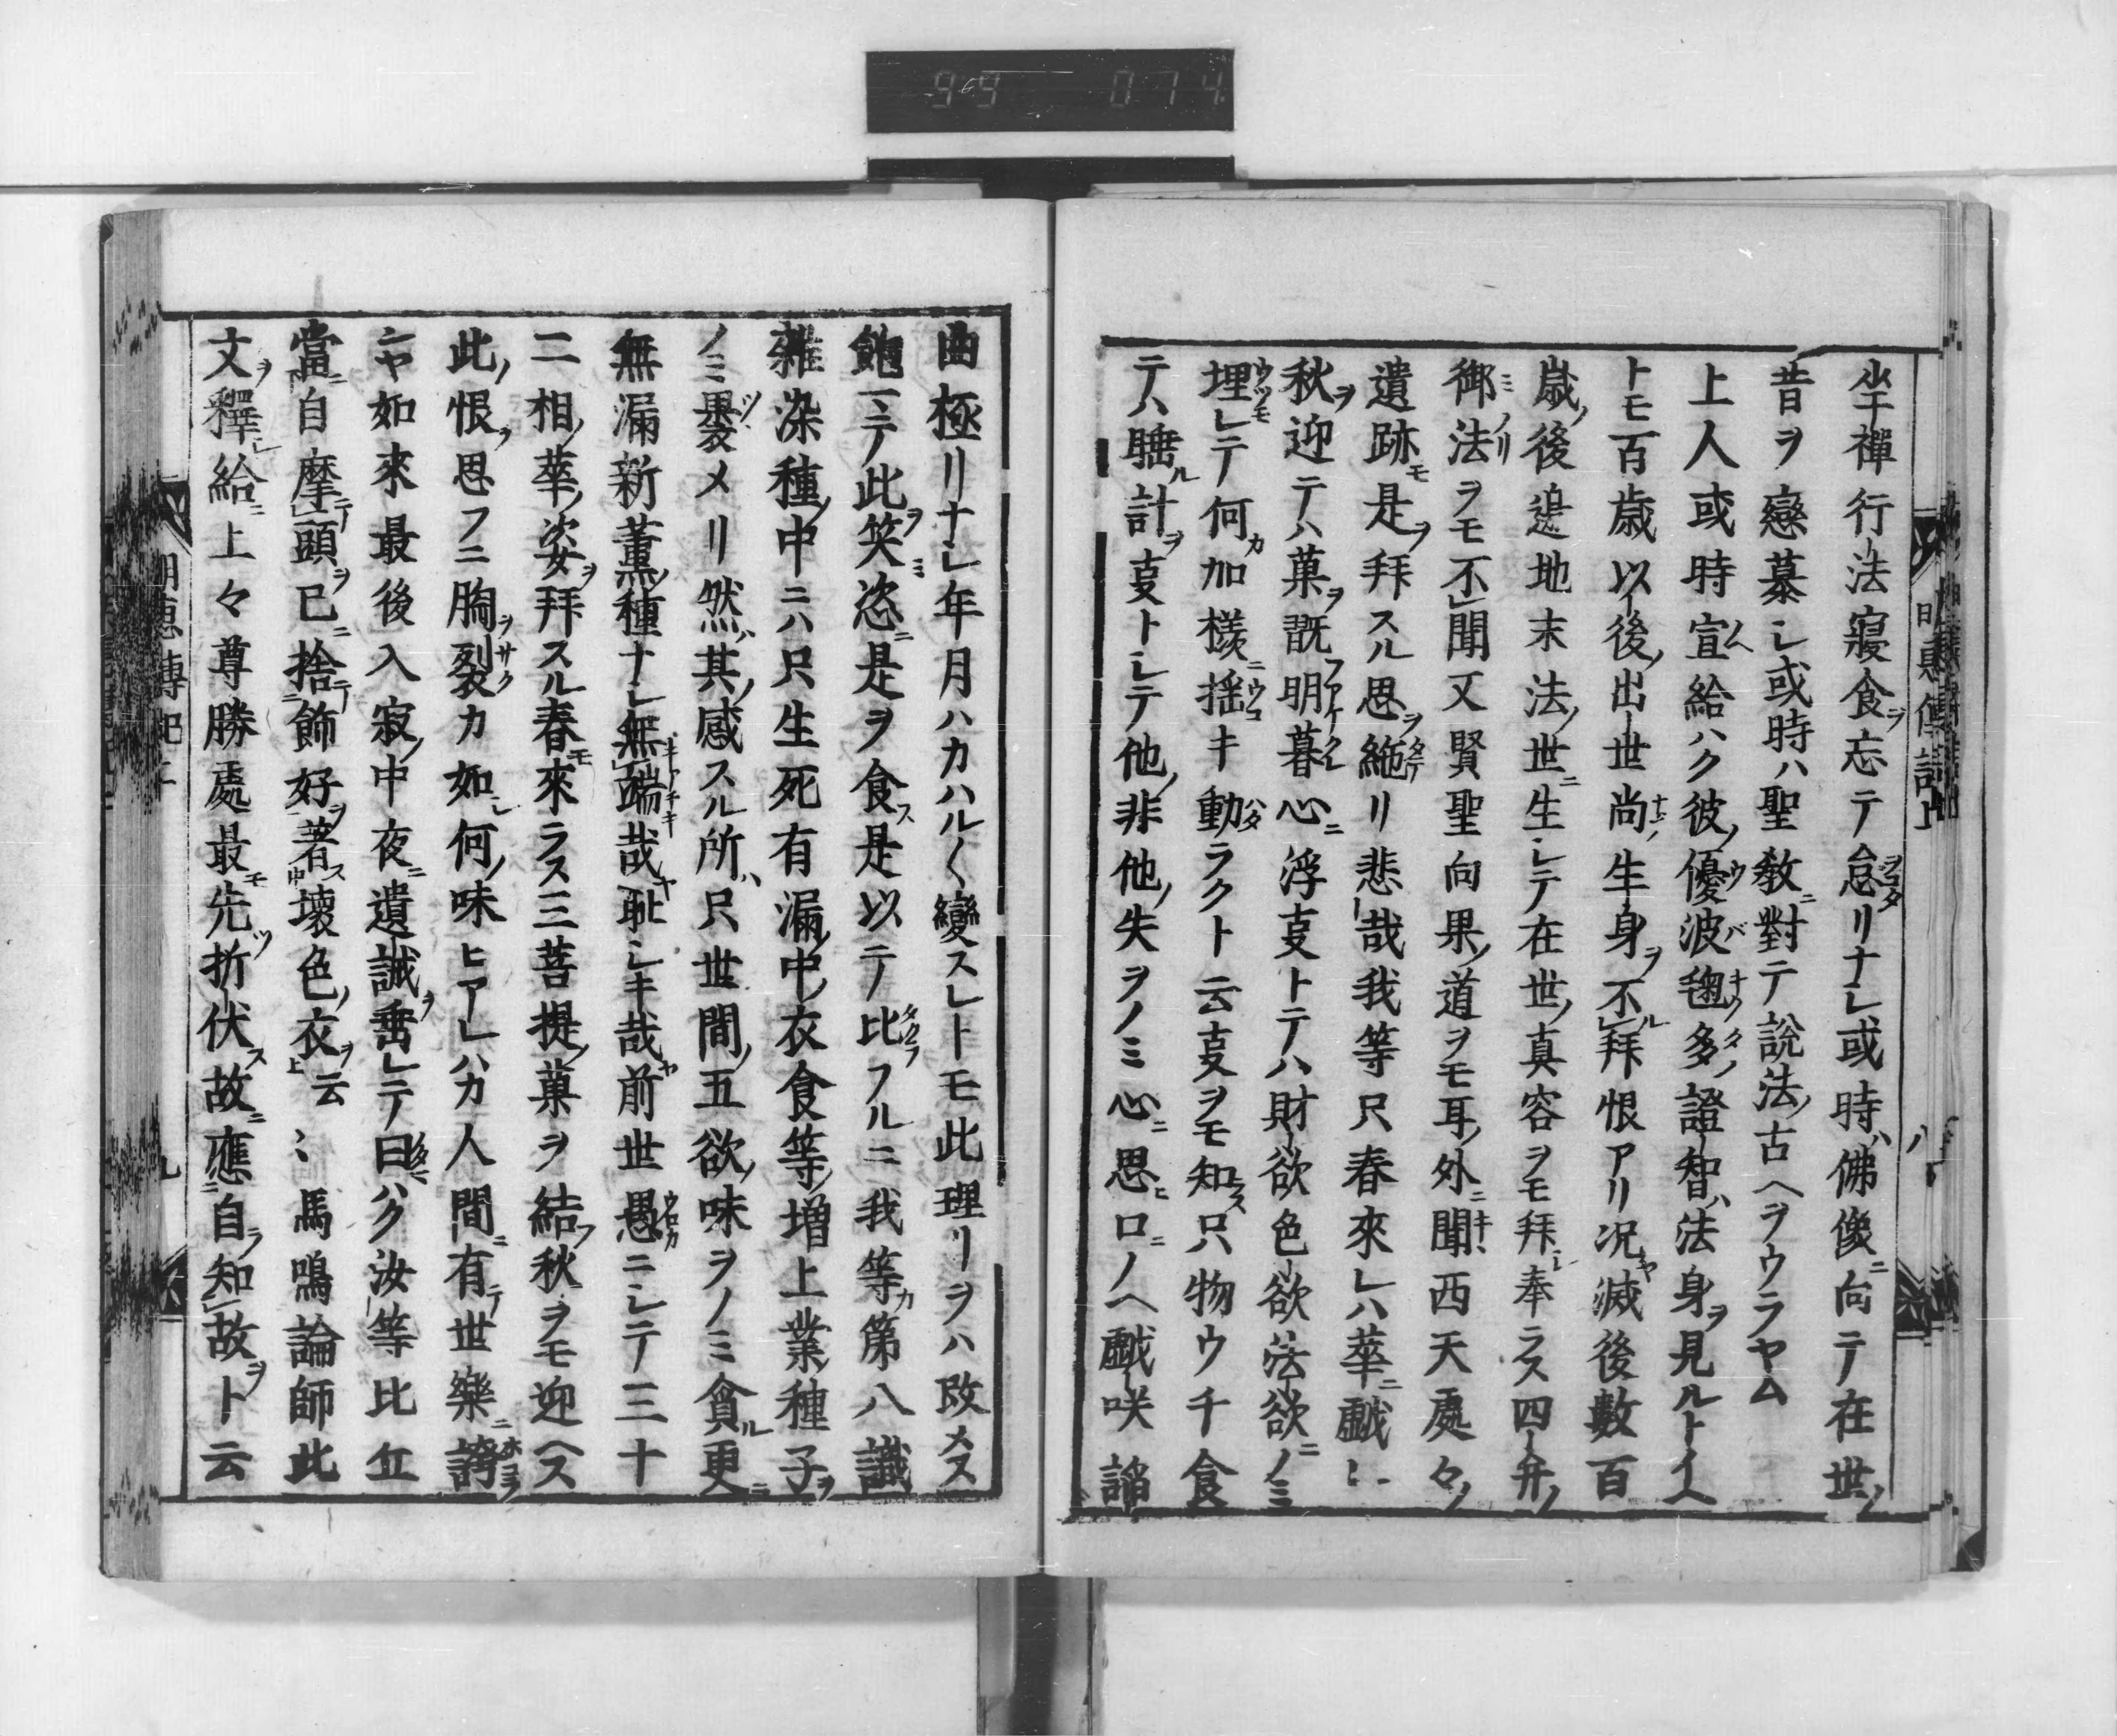 99 074
坐禪行法寢食ヲ忘テ怠リナシ或時ハ佛像ニ向テ在世ノ
昔ヲ戀慕シ或時ハ聖教ニ對テ說法ノ古ヘヲウラヤム
上人或時宣給ハク彼ノ優波毱多ノ證智ハ法身ヲ見ルトイヘ
トモ百歳以後ノ出世尚ナヲ生身ヲ不拜ル恨アリ况ヤ滅後數百
歳ノ後邊地末法ノ世ニ生レテ在世ノ真容ヲモ拜シ奉ラス四弁ノ
御法ヲモ不聞又賢聖向果ノ道ヲモ耳ノ外ニ聞キ西天處々ノ
遺跡モ是ヲ拜スル思ヲ絁リ悲哉我等只春來レハ華ニ戯ヒ
秋ヲ迎テハ菓ヲ翫明暮心ニ浮叓トテハ財欲色欲法欲ニノミ
埋レテ何カ加樣ニ揺キ動ラクト云叓ヲモ知ス只物ウチ食
テハ睡ル計ヲ叓トシテ他ノ非他ノ失ヲノミ心ニ思ヒ口ニノヘ戯咲謟
曲極リナシ年月ハカハル〱變スレトモ此理リヲハ改メス
飽マテ此笑ヲミ恣ニ是ヲ食ス是以テ比フルニ我等カ第八識
雜染種ノ中ニハ只生死有漏ノ中ノ衣食等ノ增上業種子ヲ
ノミ褁ツヽメリ然ハ其ノ感スル所ハ只世間ノ五欲ノ味ヲノミ貪ル更ニ
無漏新薰ノ種ナシ無端哉ヤ耻シキ哉ヤ前世愚ニシテ三十
二相ノ華ノ姿ヲ拜スル春モ來ラス三菩提ノ菓ヲ結フ秋ヲモ迎ヘス
此ノ恨ヲ思フニ胸ヲ裂カ如シ何ノ味ヒアレハカ人間ニ有テ世樂ニ誇
ニヤ如來最後入寂ノ中夜ニ遺誡ヲ垂レテ曰ハク汝等比丘
當ニ自摩テ頭ヲ已ニ捨テ飾好ヲ著ス壊色ノ衣ヲ云〻馬鳴論師此
文ヲ釋シ給ニ上々尊勝處最モ先ツ折伏ス故ニ應ニ自ラ知故ヲト云